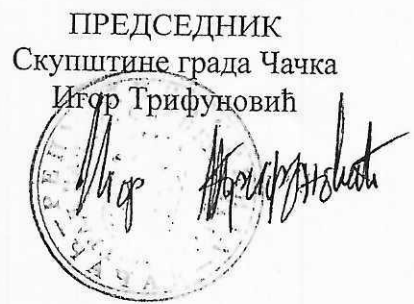 ПРЕДСЕДНИК
Скупштине града Чачка
Игор Трифуновић
Игор Трифуновић